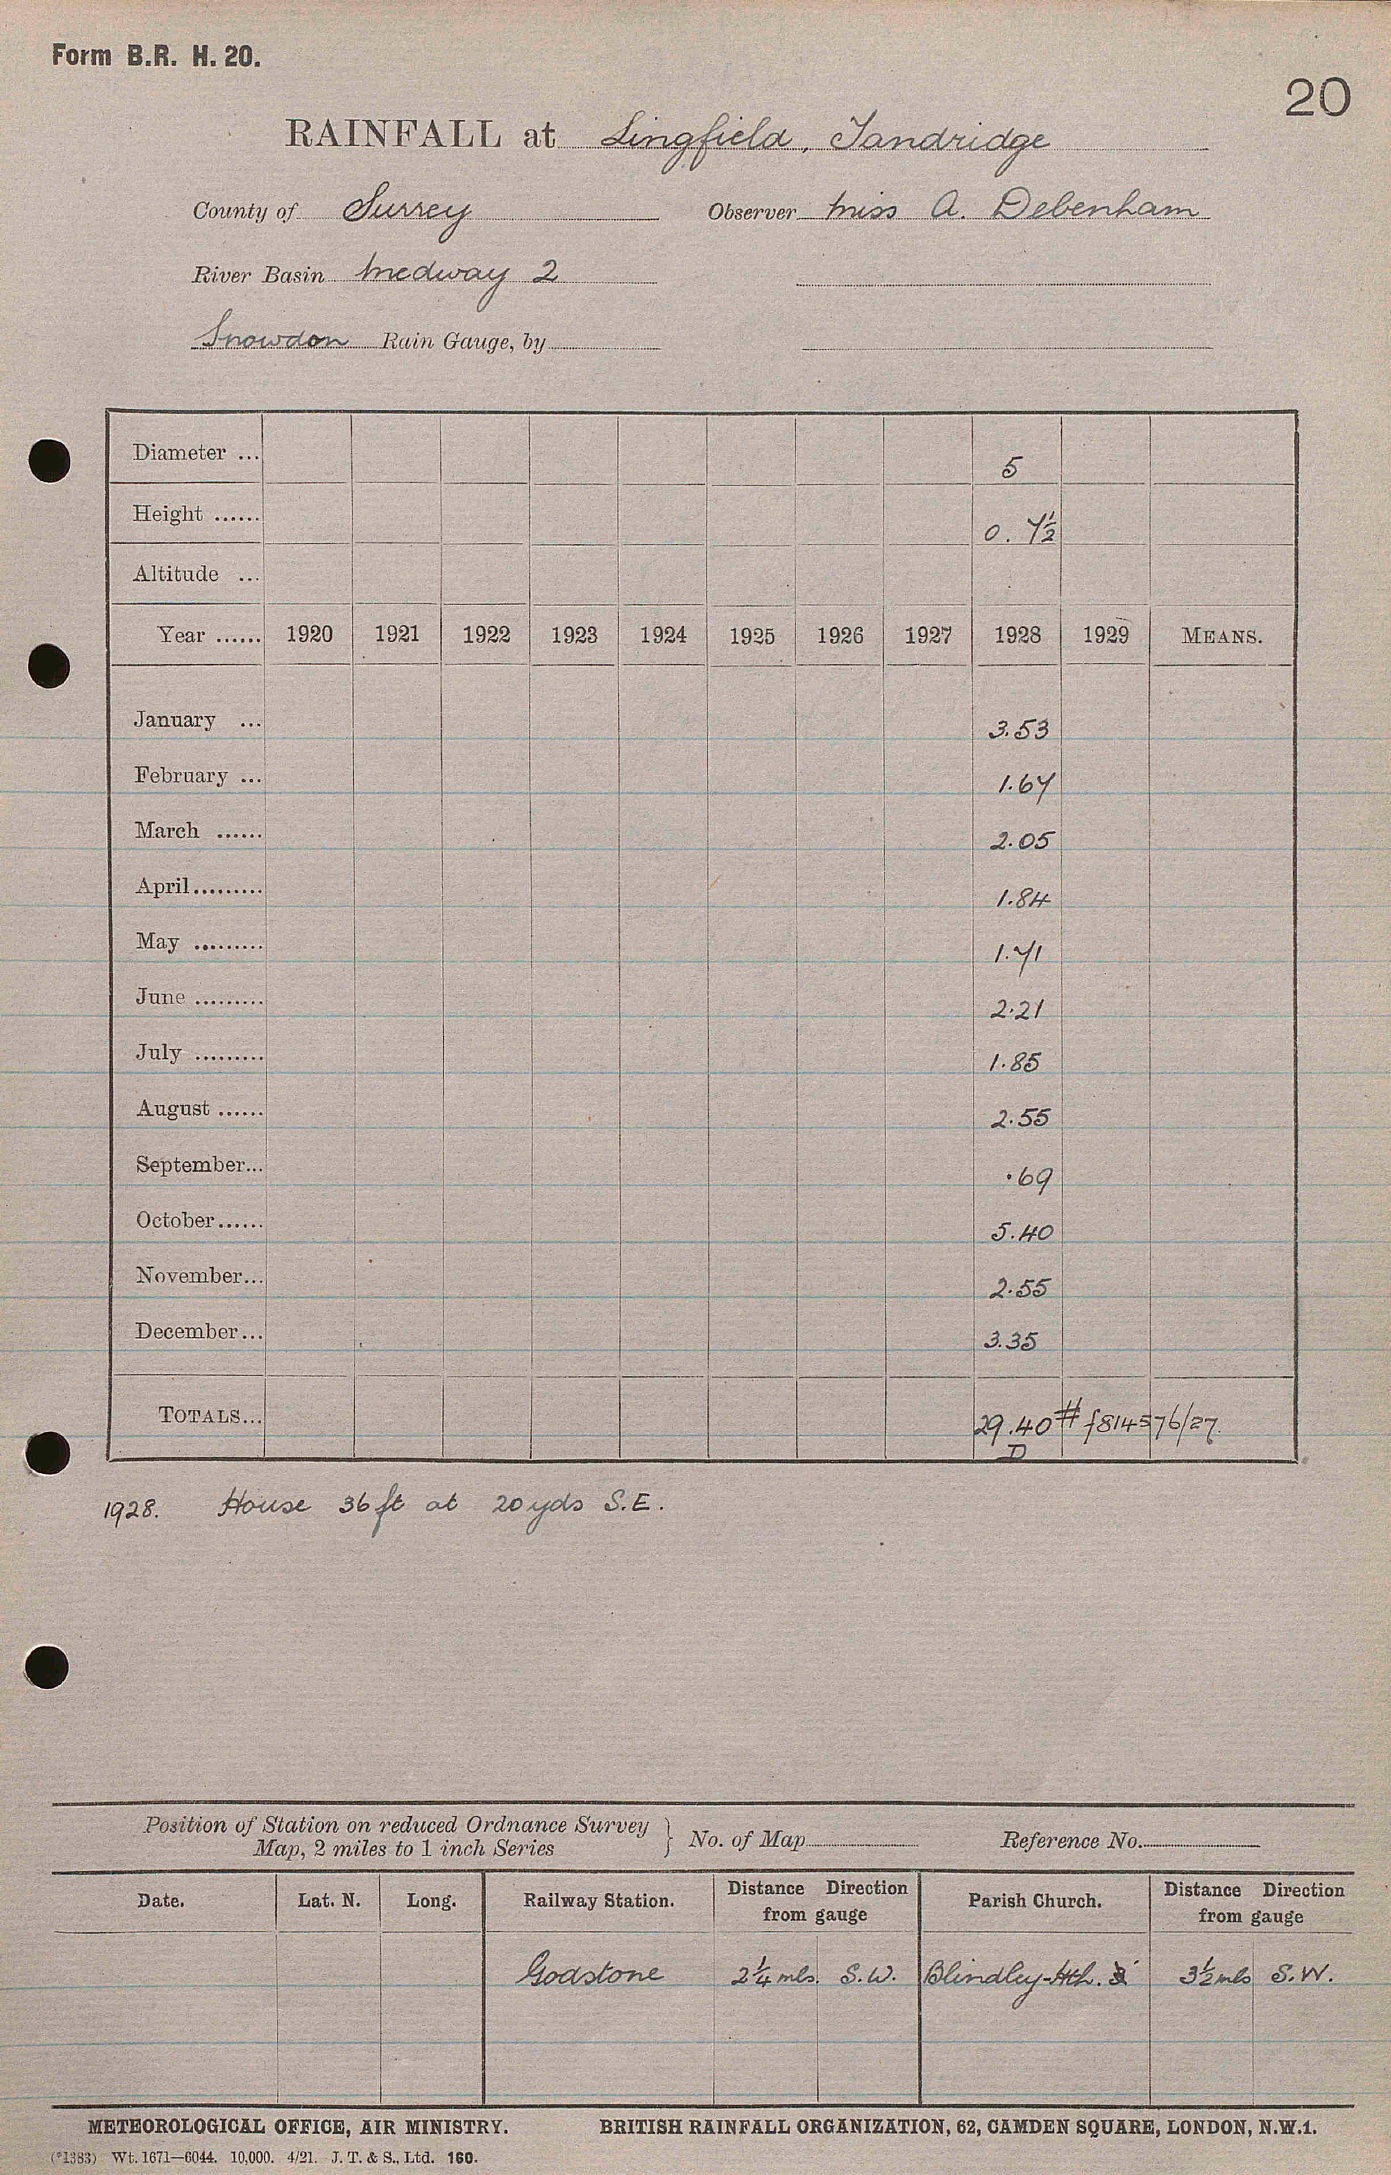 Form B.R. H. 20.
20
RAINFALL at Lingfield, Tandridge
County of Surrey Observer Miss A. Debenham
River Basin Medway 2
Snowdon Rain Gauge, by
Diameter ... 5
Height ...... 0. 7½
Altitude ...
Year ...... 1920 1921 1922 1923 1924 1925 1926 1927 1928 1929 MEANS.
January ... 3.53
February ... 1.67
March ...... 2.05
April......... 1.84
May ......... 1.71
June ......... 2.21
July ......... 1.85
August ...... 2.55
September... .69
October...... 5.40
November... 2.55
December... 3.35
TOTALS... 29.40 # f814576/27.
D
1928. House 36 ft at 20 yds S.E.
Position of Station on reduced Ordnance Survey
Map, 2 miles to 1 inch Series } No. of Map Reference No.
Date. Lat. N. Long. Railway Station. Distance Direction from gauge Parish Church. Distance Direction from gauge
Godstone 2¼ mls. S.W. Blindley-Hth. 3½ mls S.W.
METEOROLOGICAL OFFICE, AIR MINISTRY. BRITISH RAINFALL ORGANIZATION, 62, CAMDEN SQUARE, LONDON, N.W.1.
(*1383) Wt. 1671—6044. 10,000. 4/21. J. T. & S., Ltd. 160.